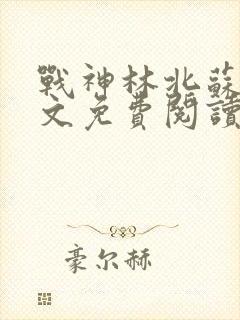 戰神林北蘇
文免費閱讀
豪尔赫